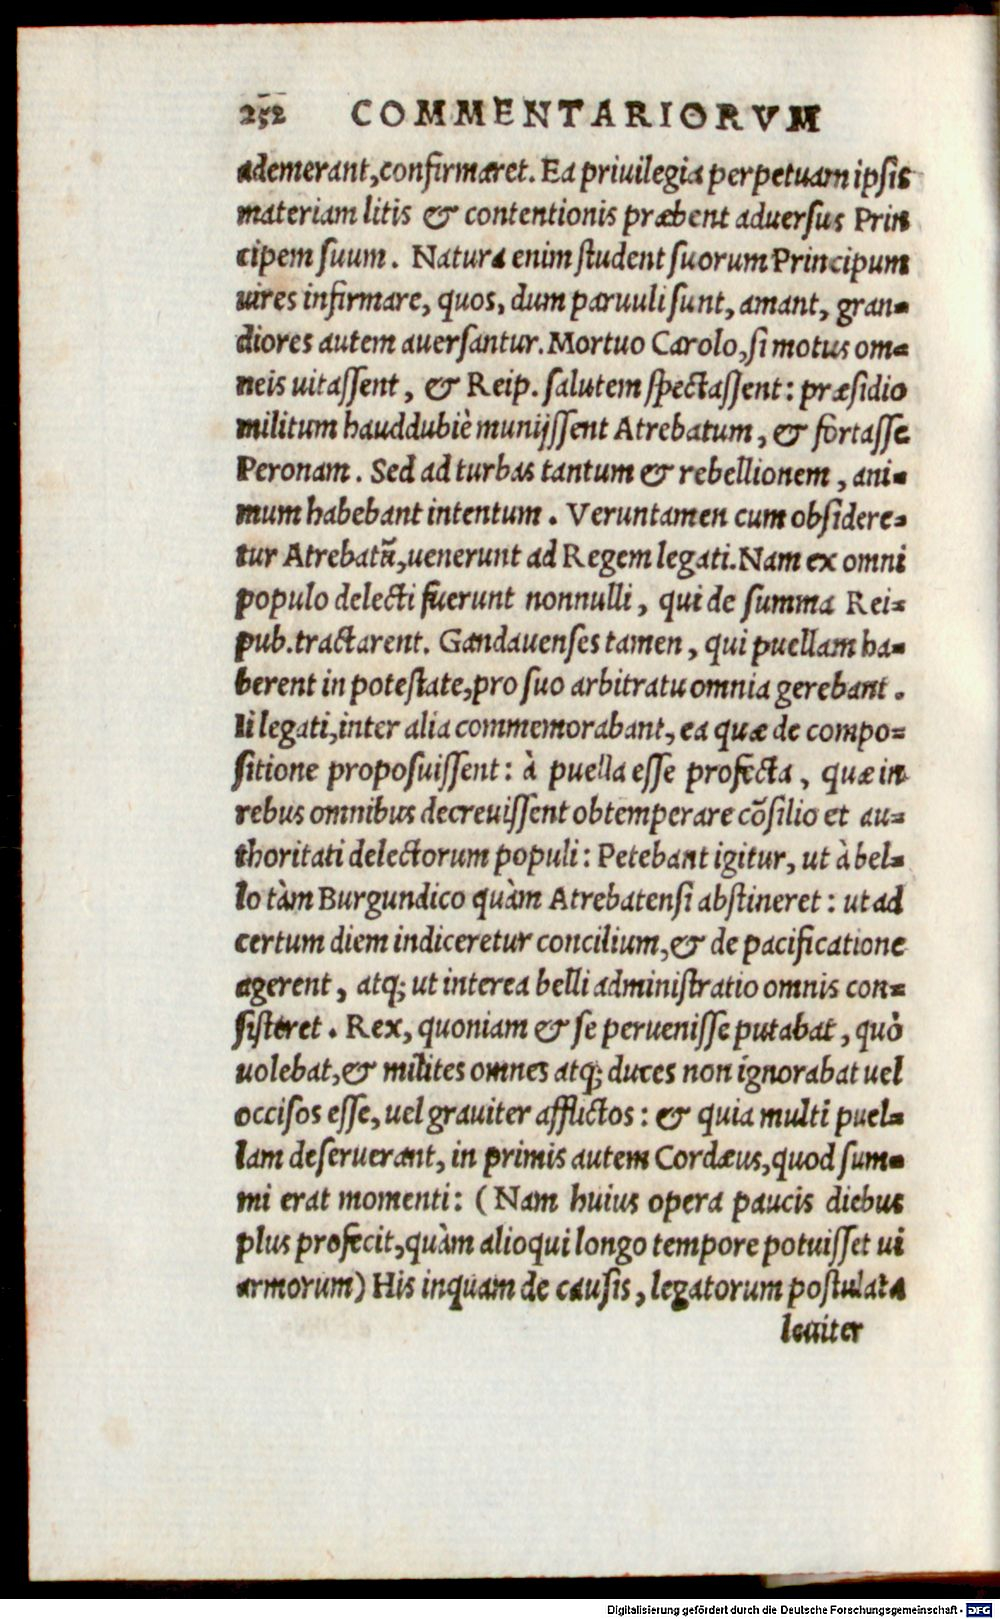 252 COMMENTARIORVM
ademerant, confirmaret. Ea priuilegia perpetuam ipsis
materiam litis & contentionis præbent aduersus Prin
cipem suum. Natura enim student suorum Principum
uires infirmare, quos, dum paruuli sunt, amant, gran-
diores autem auersantur. Mortuo Carolo, si motus om-
neis uitassent, & Reip. salutem spectassent: præsidio
militum hauddubiè munijssent Atrebatum, & fortasse
Peronam. Sed ad turbas tantum & rebellionem, ani-
mum habebant intentum. Veruntamen cum obsidere-
tur Atrebatũ, uenerunt ad Regem legati. Nam ex omni
populo delecti fuerunt nonnulli, qui de summa Rei-
pub. tractarent. Gandauenses tamen, qui puellam ha-
berent in potestate, pro suo arbitratu omnia gerebant.
Ii legati, inter alia commemorabant, ea quæ de compo-
sitione proposuissent: à puella esse profecta, quæ in
rebus omnibus decreuissent obtemperare cõsilio et au-
thoritati delectorum populi: Petebant igitur, ut à bel-
lo tàm Burgundico quàm Atrebatensi abstineret: ut ad
certum diem indiceretur concilium, & de pacificatione
agerent, atq; ut interea belli administratio omnis con-
sisteret. Rex, quoniam & se peruenisse putabat, quò
uolebat, & milites omnes atq; duces non ignorabat uel
occisos esse, uel grauiter afflictos: & quia multi puel-
lam deseruerant, in primis autem Cordæus, quod sum-
mi erat momenti: (Nam huius opera paucis diebus
plus profecit, quàm alioqui longo tempore potuisset ui
armorum) His inquam de causis, legatorum postulata
leuiter
Digitalisierung gefördert durch die Deutsche Forschungsgemeinschaft - DFG